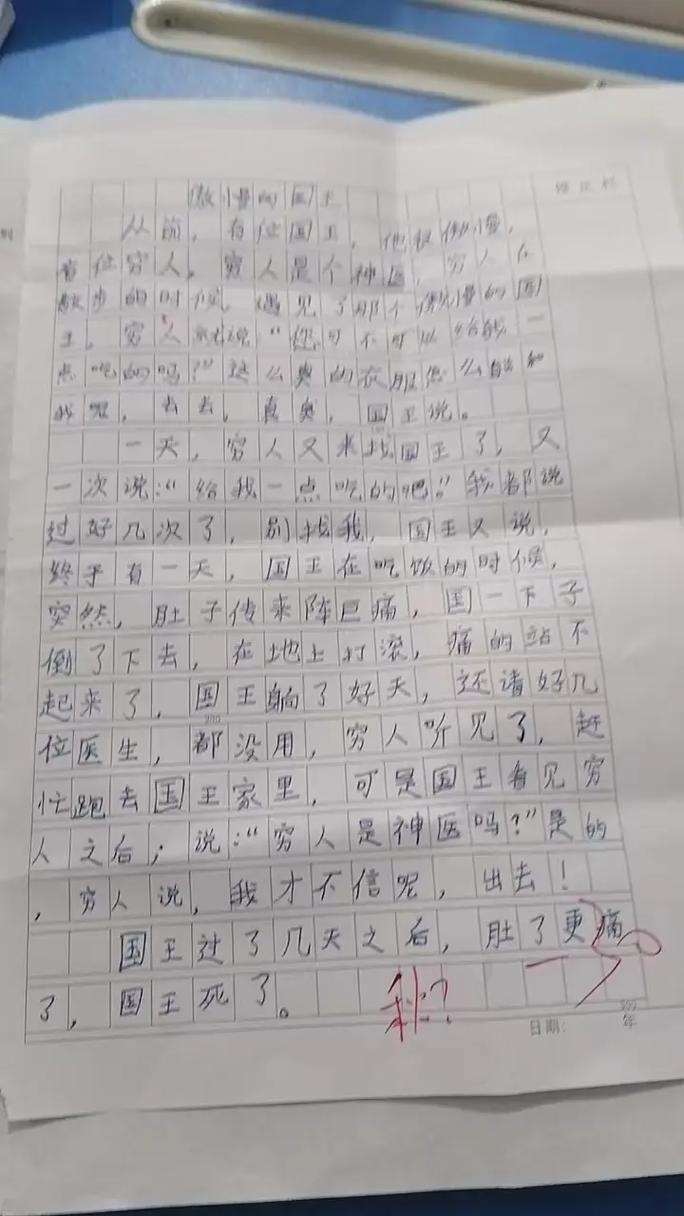 傲慢的国王
从前，有位国王，他很傲慢，
有位穷人，穷人是个神医，穷人在
散步的时候，遇见了那个傲慢的国
王，穷人就说“您可不可以给我一
点吃的吗？”这么臭的衣服怎么能和
我呢，去去，真臭，国王说。
一天，穷人又来找国王了，又
一次说：“给我一点吃的吧。”我都说
过好几次了，别找我，国王又说，
终于有一天，国王在吃饭的时候，
突然，肚子传来阵巨痛，国一下子
倒了下去，在地上打滚，痛的站不
起来了，国王躺了好天，还请好几
位医生，都没用，穷人听见了，赶
忙跑去国王家里，可是国王看见穷
人之后；说：“穷人是神医吗？”是的
，穷人说，我才不信呢，出去！
国王过了几天之后，肚了更痛
了，国王死了。
日期：
年